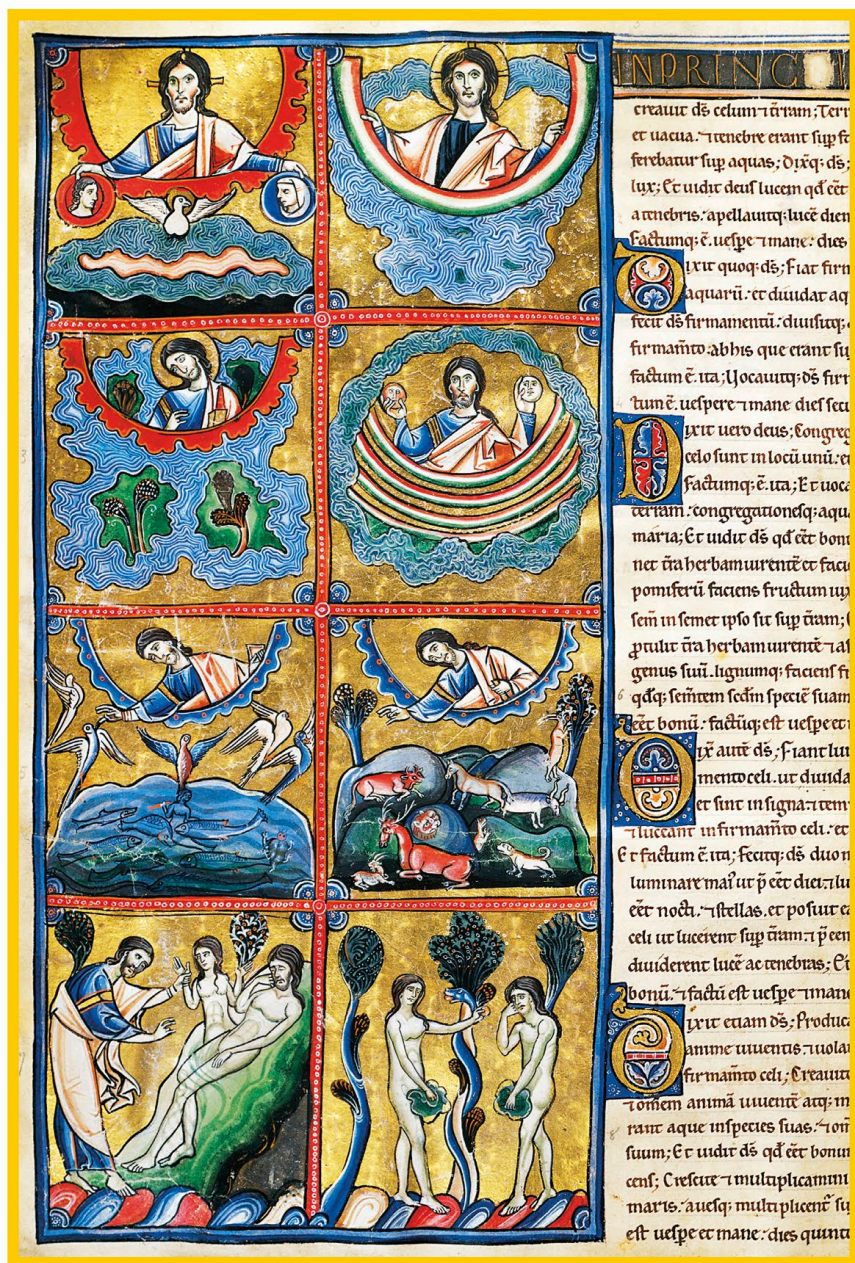 IN PRINC
creauit dš celum ⁊ tr̄ram; Terr
et uacua. ⁊ tenebre erant sup̄ fa
ferebatur sup̄ aquas; Dixq; dš;
lux; Et uidit deus lucem qd̄ eēt
a tenebris. apellauitq; lucē diem
factumq; ē. uesp̄e ⁊ mane. dies
Dixit quoq; dš; Fiat firm
aquarū. et diuidat aq
fecit dš firmamentū. diuisitq;
firmam̄to. ab his que erant su
factum ē. ita; Uocauitq; dš firm
tum ē. uespere ⁊ mane dies secu
Dixit uero deus; Congreg
celo sunt in locū unū. et
Factumq; ē. ita; Et uoca
terram. congregationesq; aqua
maria; Et uidit dš qd̄ eēt bonu
net tr̄a herbam uirentē et facie
pomiferū faciens fructum iux
sem̄ in semet ipso sit sup̄ tr̄am;
ꝓtulit tr̄a herbam uirentē ⁊ af
genus suū. lignumq; faciens fr
qd̄q; sem̄tem scd̄m speciē suam
eēt bonū. factūq; est uesp̄e et
Dix̄ autē dš; Fiant lum
mento celi. ut diuida
et sint in signa ⁊ tem
⁊ luceant in firmam̄to celi. et
Et factum ē. ita; Fecitq; dš duo m
luminare mai' ut p̄eēt diei. ⁊ lu
eēt nocti. ⁊ stellas. et posuit ea
celi ut lucerent sup̄ tr̄am. ⁊ p̄een
diuiderent lucē ac tenebras; Et
bonū. ⁊ factū est uesp̄e ⁊ mane
Dixit etiam dš; Produca
anime uiuentis ⁊ uola
firmam̄to celi; Creauitq
⁊ omem animā uiuentē atq; m
rant aque in species suas. ⁊ om̄
suum; Et uidit dš qd̄ eēt bonum
cens; Crescite ⁊ multiplicamini
maris. auesq; multiplicent̄ su
est uesp̄e et mane. dies quintu